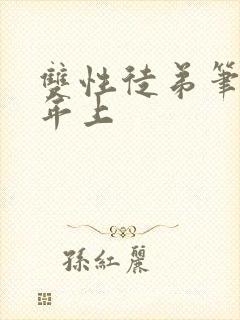 雙性徒弟筆
年上
孫紅麗